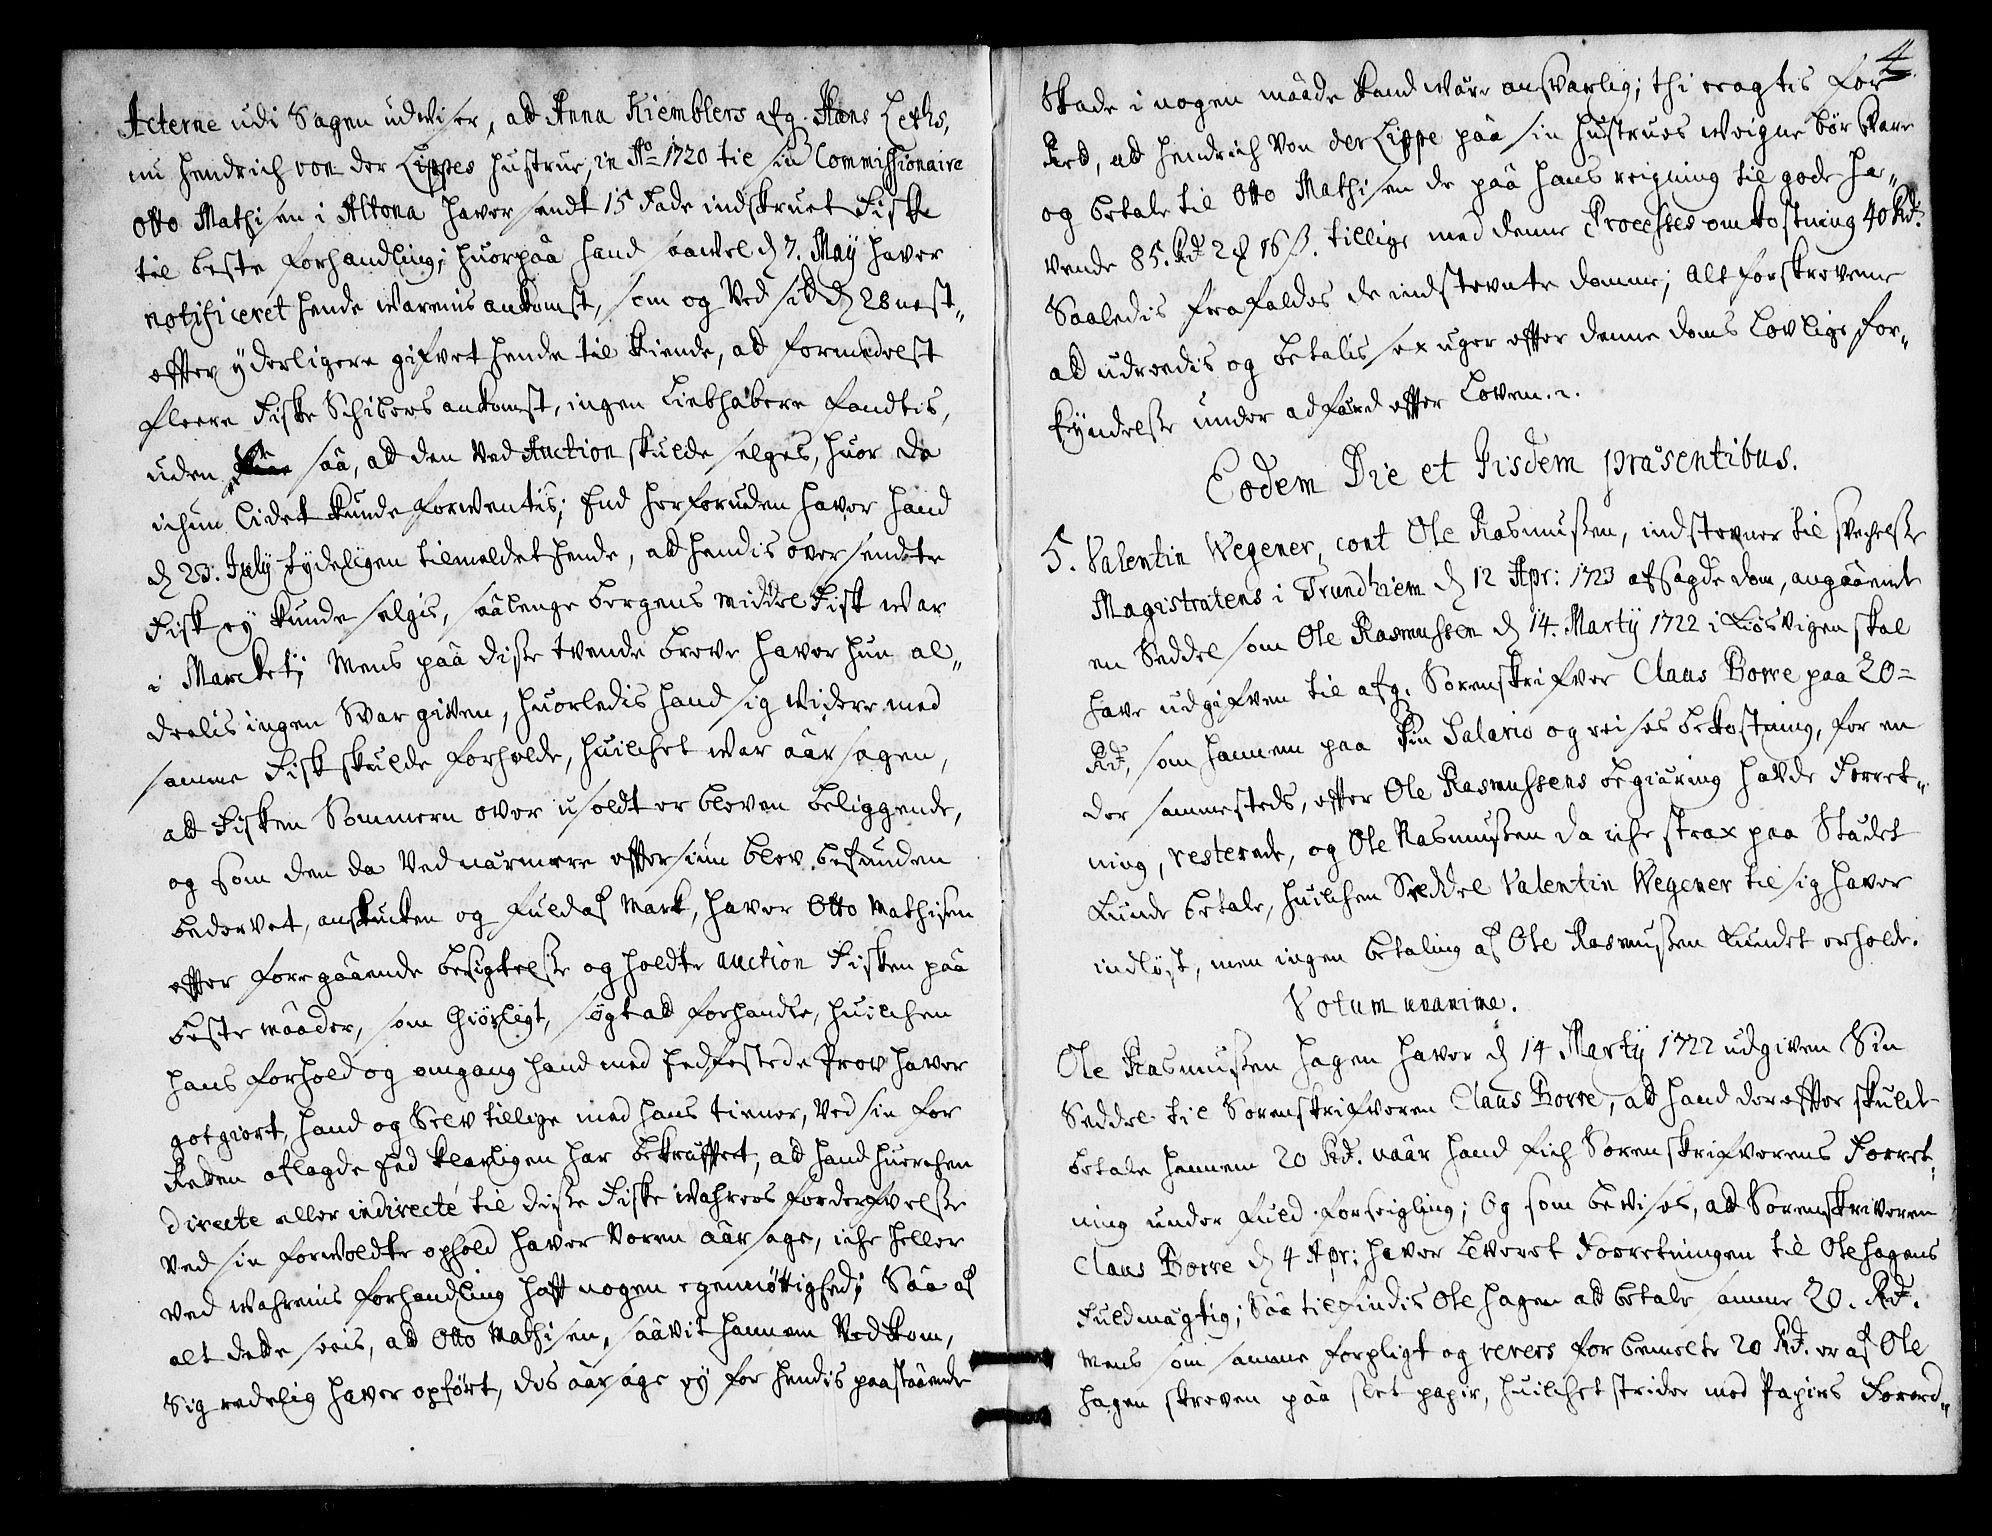 Acterne udi Sagen udviser, ad Anna Kiemblers afg. Hans Leths,
nu Hendrich von der Lippes Hustrue, in Ao 1720 til sin Commissionaire
Otto Mathisen i Altona haver sendt 15 Fade indskruet Fiske
til beste forhandling; huorpaa hand saavel d 7. Maÿ haver
notificeret hende warenis ankomst, som og ved sidd d 28 nest„
efter ÿderligere gifvet hende til kiende, ad formedelst
fleere Fiske Schibers ankomst, ingen Liebhabere fandtis,
uden saa, ad den ved Auction skulde selges, huor da
ichun lidet kunde forventis; End herforuden haver hand
d 23. Julÿ tÿdeligen tilmeldet hende, ad hendis over sendte
Fisk eÿ kunde selgis, saalenge bergens middel Fisk war
i Marcket; Mens paa disse tvende breve haver hun al„
delis ingen Svar given, huorledis hand sig widere med
samme Fisk skulde forholde, huilchet war aarsagen,
ad Fisken Sommeren over usoldt er bleven beliggende,
og som den da ved nærmere eftersiun blev befunden
bedervet, anstucken og fuld af Mark, haver Otto Mathisen
efter foregaaende besigtelsse og holdte auction Fisken paa
beste maader, som Giørligt, søgt ad forhandle, huilchen
hans forhold og omgang hand med Eedfestede Prov haver
gotgiort, hand og Selv tillige med hans tiener, ved sin for
Retten aflagde Eed klarligen har bekræfftet, ad hand huerchen
directe eller indirectè til disse Fiske Wahrers forderfvelsse
ved sin forvoldte ophold haver voren aarsage, iche heller
ved wahrenis forhandling hafft nogen egennøttighed; Saa af
alt dette seeis, ad Otto Mathisen, saavit hannem vedkom,
sig redelig haver opført, des aarsage eÿ for hendis paastaaende
4.
Skade i nogen maade kand være ansvarlig; thi eragtis for
Ret, ad Hendrich Von der Lippe paa sin Hustrues Weigne bør svare
og betale til Otto Mathisen de paa hans reigning til gode ha„
vende 85. Rdr 2 16 ß. tillige med denne Processes omkostning 40 Rdr.
Saaledis frafaldes de indstevnte domme; Alt forskrevene
ad udredis og betalis sex uger efter denne doms Lovlige for„
kÿndelsse under adfærd efter Loven.
Eodem Die et Jisdem præsentibus.
5. Valentin Wegener, cont Ole Rasmussen, indstevner til svechelsse
Magistratens i Trundhiem d 12 Apr: 1723 afsagde dom, angaaende
en Seddel som Ole Rasmussen d 14. Martÿ 1722 i Løsvigen skal
have udgifven til afg. Sorenskrifver Claus Borre paa 20=
Rdr, som hannem paa Sin Salario og reises bekostning, for en
der sammesteds, efter Ole Rasmussens begiæring havde Forret„
ning, resterede, og Ole Rasmussen da iche strax paa Stædet
kunde betale, huilchen Seddel Valentin Wegener til sig haver
indløst, men ingen betaling af Ole Rasmussen kundet erholde.
Votum unanime.
Ole Rasmussen Hagen haver d 14 Martÿ 1722 udgiven Sin
Seddel til Sorenskrifveren Claus Borre, ad hand derefter skulde
betale hannem 20 Rdr. naar hand fich Sorenskrifverens Forret„
ning under fuld forseigling; Og som bevises, ad Sorenskriveren
Claus Borre d 4 Apr: haver leveret Forretningen til Ole Hagens
Fuldmægtig; Saa tilfindis Ole Hagen ad betale samme 20. Rdr.
Mens som samme forpligt og revers for bemelte 20 Rdr. er af Ole
Hagen skreven paa slet papir, huilchet strider mod Papirs Forord„